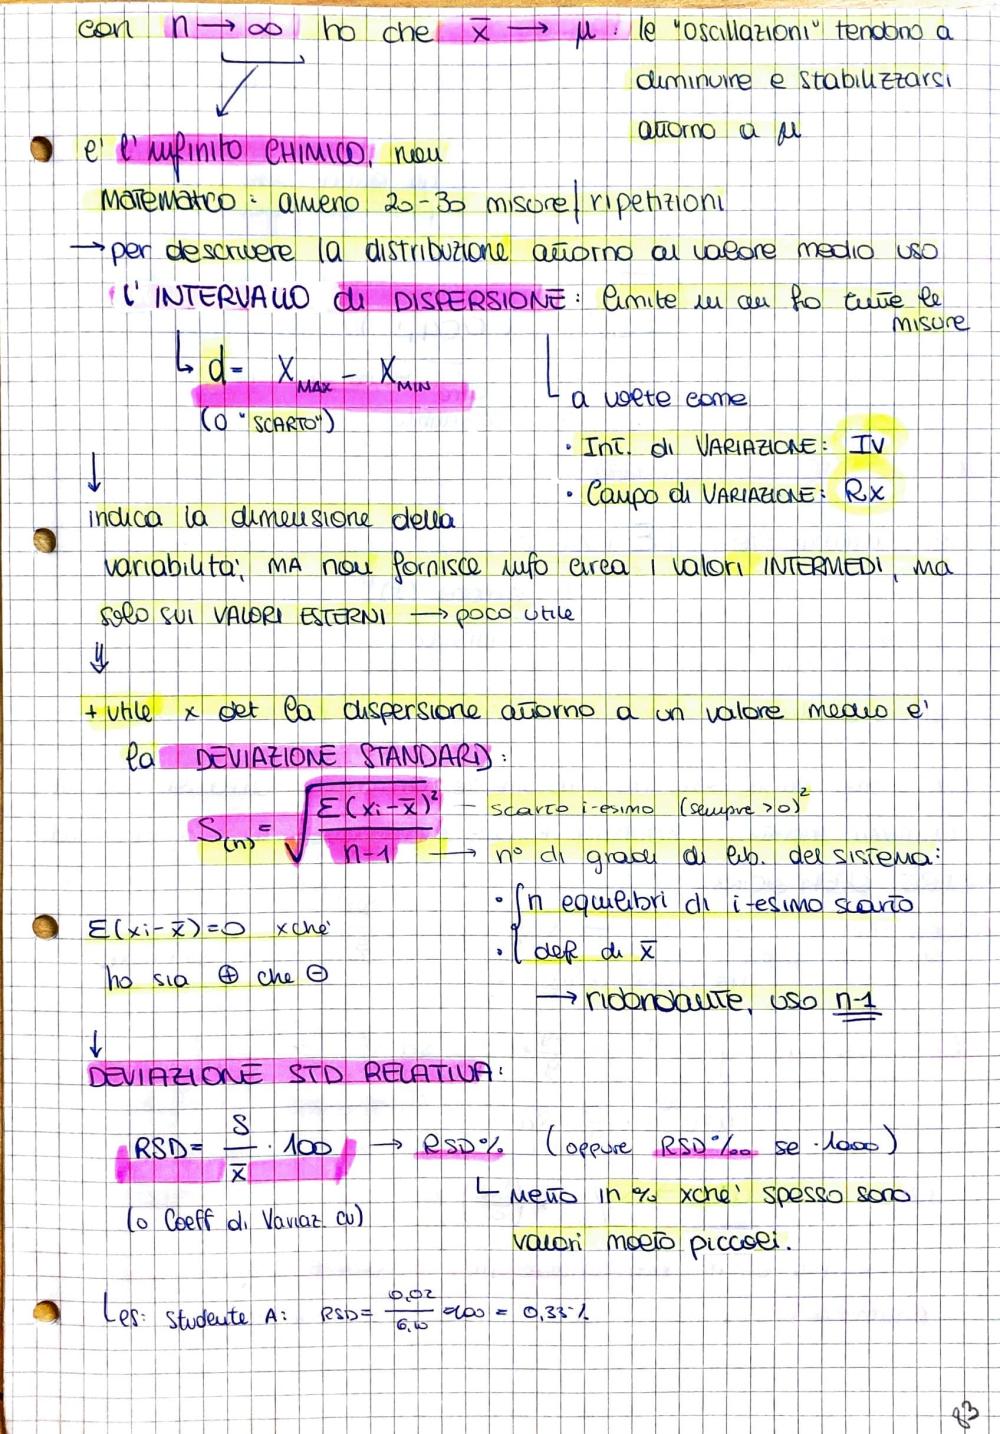 con n → ∞ ho che x̄ → μ : le "oscillazioni" tendono a
diminuire e stabilizzarsi
attorno a μ
e' l'infinito CHIMICO, non
MATEMATICO: almeno 20-30 misure/ripetizioni
→ per descrivere la distribuzione attorno al valore medio uso
L'INTERVALLO di DISPERSIONE: limite in cui ho tutte le
misure
↳ d = X MAX - X MIN
(o "SCARTO")
a volte come
• Int. di VARIAZIONE: IV
• Campo di VARIAZIONE: Rx
↓
indica la dimensione della
variabilita', MA non fornisce info circa i valori INTERMEDI, ma
solo SUI VALORI ESTERNI → poco utile
⇓
+ utile x det la dispersione attorno a un valore medio e'
la DEVIAZIONE STANDARD:
S(n) = √ Σ(xi-x̄)² / n-1
— scarto i-esimo (sempre >0)²
→ n° di gradi di lib. del sistema:
• n equilibri di i-esimo scarto
• def di x̄
→ ridondante, uso n-1
Σ(xi-x̄)=0 xche'
ho sia ⊕ che ⊖
↓
DEVIAZIONE STD RELATIVA:
RSD = S / x̄ · 100 → RSD% (oppure RSD‰ se ·1000)
(o Coeff di Variaz. CV)
Metto in % xche' spesso sono
valori molto piccoli.
es: Studente A: RSD = 0,02 / 6,10 ·100 = 0,33%
83